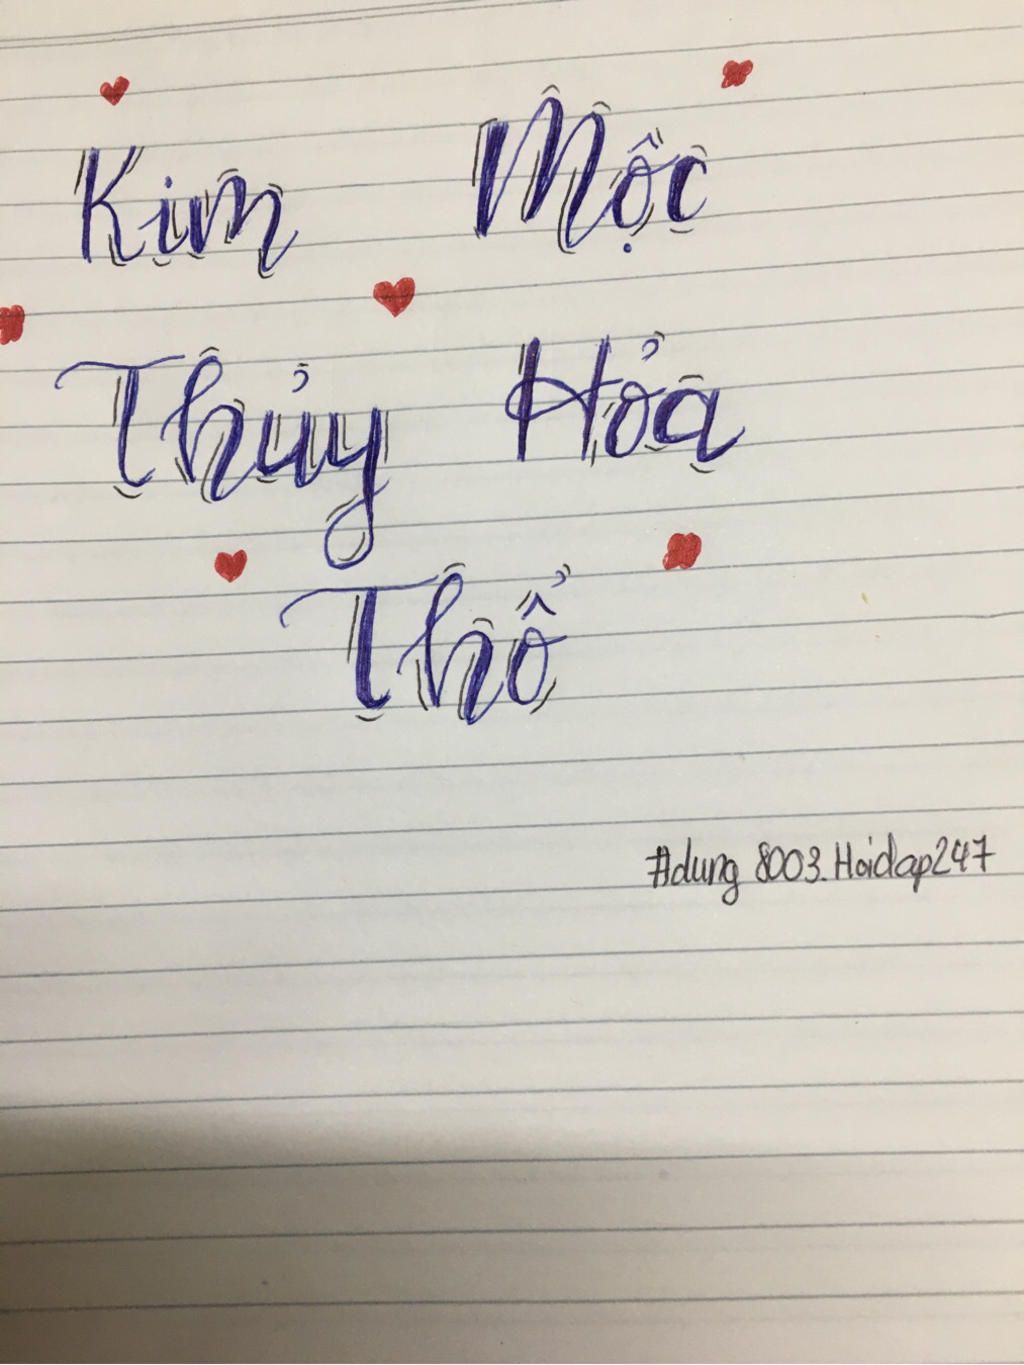 Kim Mộc
Thủy Hỏa
Thổ
#dung 8003.Hoidap247